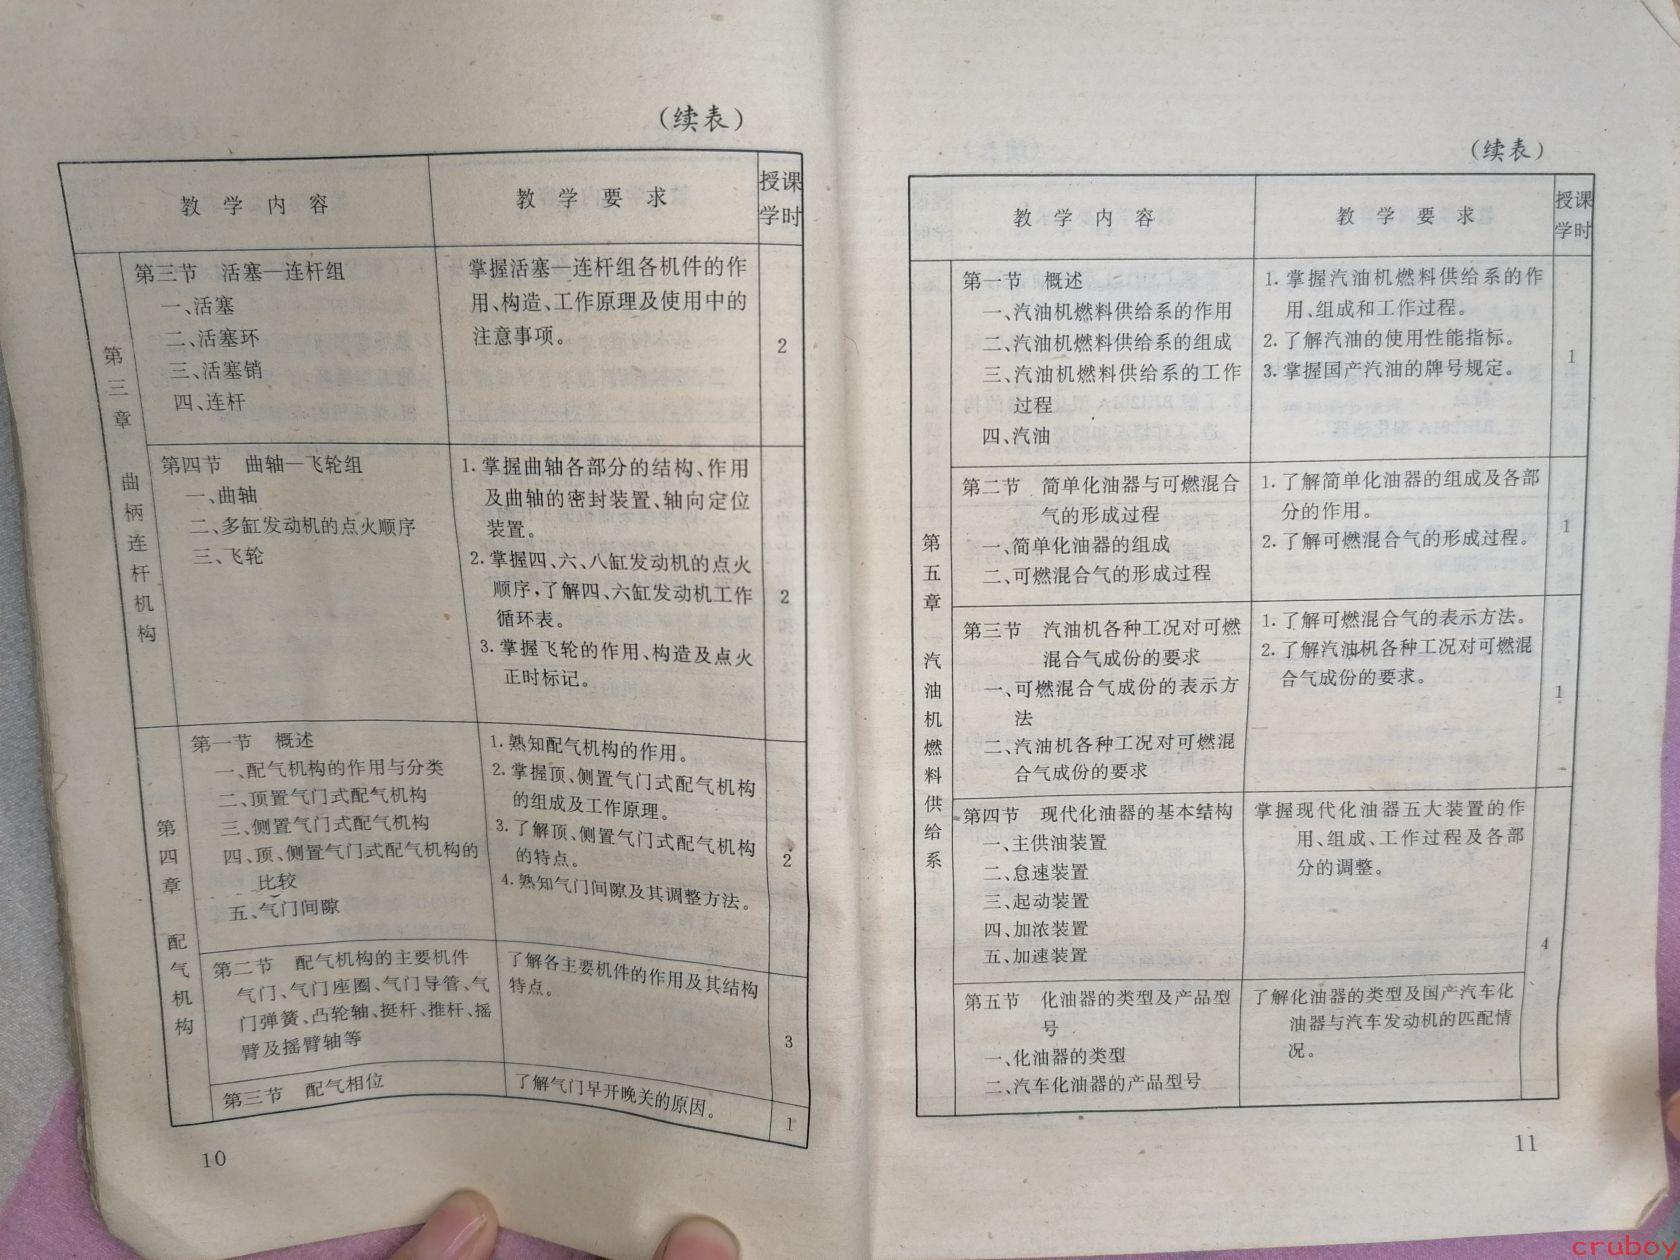 （续表）
教学内容 教学要求 授课
学时
第三章 曲柄连杆机构
第三节 活塞—连杆组
一、活塞
二、活塞环
三、活塞销
四、连杆
掌握活塞—连杆组各机件的作
用、构造、工作原理及使用中的
注意事项。
2
第四节 曲轴—飞轮组
一、曲轴
二、多缸发动机的点火顺序
三、飞轮
1.掌握曲轴各部分的结构、作用
及曲轴的密封装置、轴向定位
装置。
2.掌握四、六、八缸发动机的点火
顺序，了解四、六缸发动机工作
循环表。
3.掌握飞轮的作用、构造及点火
正时标记。
2
第四章 配气机构
第一节 概述
一、配气机构的作用与分类
二、顶置气门式配气机构
三、侧置气门式配气机构
四、顶、侧置气门式配气机构的
比较
五、气门间隙
1.熟知配气机构的作用。
2.掌握顶、侧置气门式配气机构
的组成及工作原理。
3.了解顶、侧置气门式配气机构
的特点。
4.熟知气门间隙及其调整方法。
2
第二节 配气机构的主要机件
气门、气门座圈、气门导管、气
门弹簧、凸轮轴、挺杆、推杆、摇
臂及摇臂轴等
了解各主要机件的作用及其结构
特点。
3
第三节 配气相位
了解气门早开晚关的原因。
1
10
（续表）
教学内容 教学要求 授课
学时
第五章 汽油机燃料供给系
第一节 概述
一、汽油机燃料供给系的作用
二、汽油机燃料供给系的组成
三、汽油机燃料供给系的工作
过程
四、汽油
1.掌握汽油机燃料供给系的作
用、组成和工作过程。
2.了解汽油的使用性能指标。
3.掌握国产汽油的牌号规定。
1
第二节 简单化油器与可燃混合
气的形成过程
一、简单化油器的组成
二、可燃混合气的形成过程
1.了解简单化油器的组成及各部
分的作用。
2.了解可燃混合气的形成过程。
1
第三节 汽油机各种工况对可燃
混合气成份的要求
一、可燃混合气成份的表示方
法
二、汽油机各种工况对可燃混
合气成份的要求
1.了解可燃混合气的表示方法。
2.了解汽油机各种工况对可燃混
合气成份的要求。
1
第四节 现代化油器的基本结构
一、主供油装置
二、怠速装置
三、起动装置
四、加浓装置
五、加速装置
掌握现代化油器五大装置的作
用、组成、工作过程及各部
分的调整。
4
第五节 化油器的类型及产品型
号
一、化油器的类型
二、汽车化油器的产品型号
了解化油器的类型及国产汽车化
油器与汽车发动机的匹配情
况。
11
cruboy